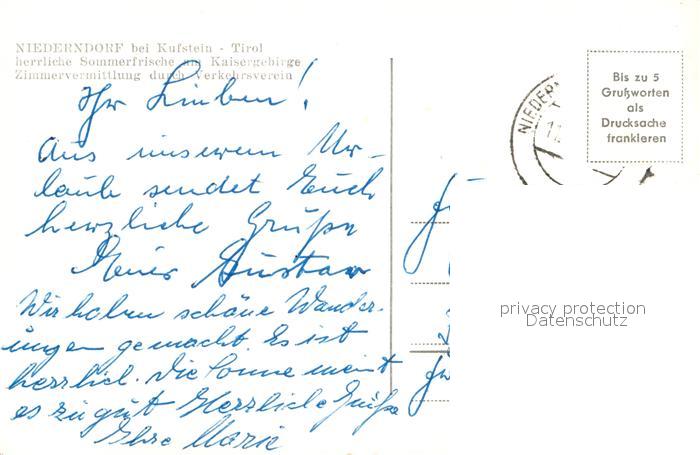 NIEDERNDORF bei Kufstein - Tirol
herrliche Sommerfrische am Kaisergebirge
Zimmervermittlung durch Verkehrsverein
Ihr Lieben!
Aus unserem Ur-
laub sendet Euch
herzliche Grüße
Euer Gustav
Wir haben schöne Wander-
ungen gemacht. Es ist
herrlich. Die Sonne meint
es zu gut Herzliche Grüße
Ihre Marie
Bis zu 5
Grußworten
als
Drucksache
frankieren
NIEDER
privacy protection
Datenschutz